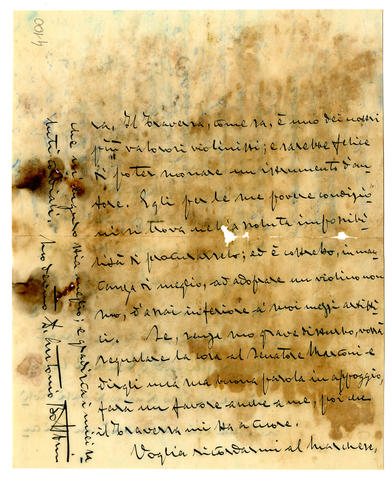 4100
ra. Il Traversa, come sa, è uno dei nostri
più valorosi violinisti; e sarebbe felice
di poter suonare un istrumento d'au-
tore. Egli per le sue povere condizio-
ni si trova nell'assoluta impossibi-
lità di procurarselo; ed è costretto, in man-
canza di meglio, ad adoprare un violino non
suo, d'assai inferiore a' suoi mezzi artisti-
ci. Se, senza suo grave disturbo, vorrà
segnalare la cosa al Senatore Marconi e
dirgli una sua buona parola in appoggio,
farà un favore anche a me, poi che
il Traversa mi sta a cuore.
Voglia ricordarmi al Marchese,
che mi auguro stia meglio; e gradisca i miei sa-
luti cordiali.
Suo dev.